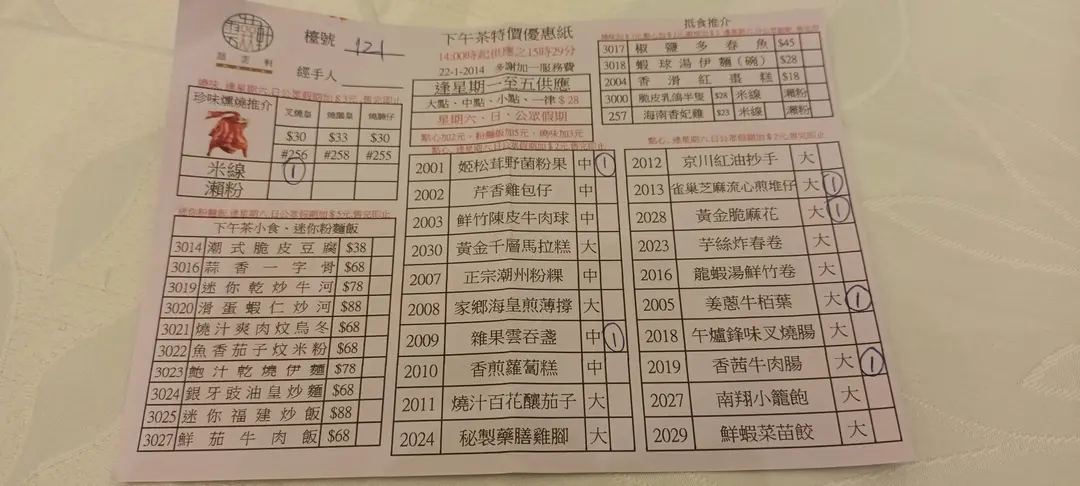 檯號 121
經手人
下午茶特價優惠紙
14:00時起供應之15時29分
22-1-2014 多謝加一服務費
逢星期一至五供應
大點、中點、小點、一律 $28
星期六、日、公眾假期
點心加2元，粉麵飯加5元，燒味加3元
珍味燻燒推介
叉燒皇 燒鵝皇 燒腩仔
$30 $33 $30
#256 #258 #255
米線 1
瀨粉
迷你粉麵飯 逢星期六.日公眾假期加$5元,售完即止
下午茶小食、迷你粉麵飯
3014 潮式脆皮豆腐 $38
3016 蒜香一字骨 $68
3019 迷你乾炒牛河 $78
3020 滑蛋蝦仁炒河 $88
3021 燒汁爽肉炆烏冬 $68
3022 魚香茄子炆米粉 $68
3023 鮑汁乾燒伊麵 $78
3024 銀牙豉油皇炒麵 $68
3025 迷你福建炒飯 $88
3027 鮮茄牛肉飯 $68
點心, 逢星期六.日公眾假期加$2元.售完即止
2001 姬松茸野菌粉果 中 1
2002 芹香雞包仔 中
2003 鮮竹陳皮牛肉球 中
2030 黃金千層馬拉糕 大
2007 正宗潮州粉粿 中
2008 家鄉海皇煎薄撐 大
2009 雜果雲吞盞 中 1
2010 香煎蘿蔔糕 中
2011 燒汁百花釀茄子 大
2024 秘製藥膳雞腳 大
抵食推介
3017 椒鹽多春魚 $45
3018 蝦球湯伊麵(碗) $28
2004 香滑紅棗糕 $18
3000 脆皮乳鴿半隻 $28 米線 瀨粉
257 海南香妃雞 $23 米線 瀨粉
點心, 逢星期六.日公眾假期加$2元.售完即止
2012 京川紅油抄手 大
2013 雀巢芝麻流心煎堆仔 大 1
2028 黃金脆麻花 大 1
2023 芋絲炸春卷 大
2016 龍蝦湯鮮竹卷 大
2005 姜蔥牛栢葉 大 1
2018 午爐鋒味叉燒腸 大
2019 香茜牛肉腸 大 1
2027 南翔小籠飽 大
2029 鮮蝦菜苗餃 大